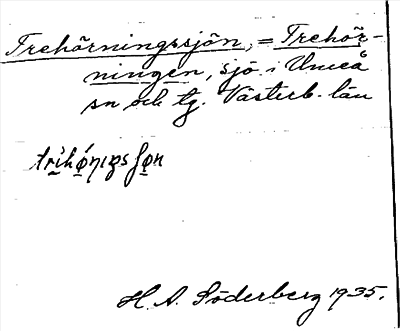 Trehörningssjön, = Trehör-
ningen, sjö i Umeå
sn och tg. Västerb. län
H. A. Söderberg 1935.